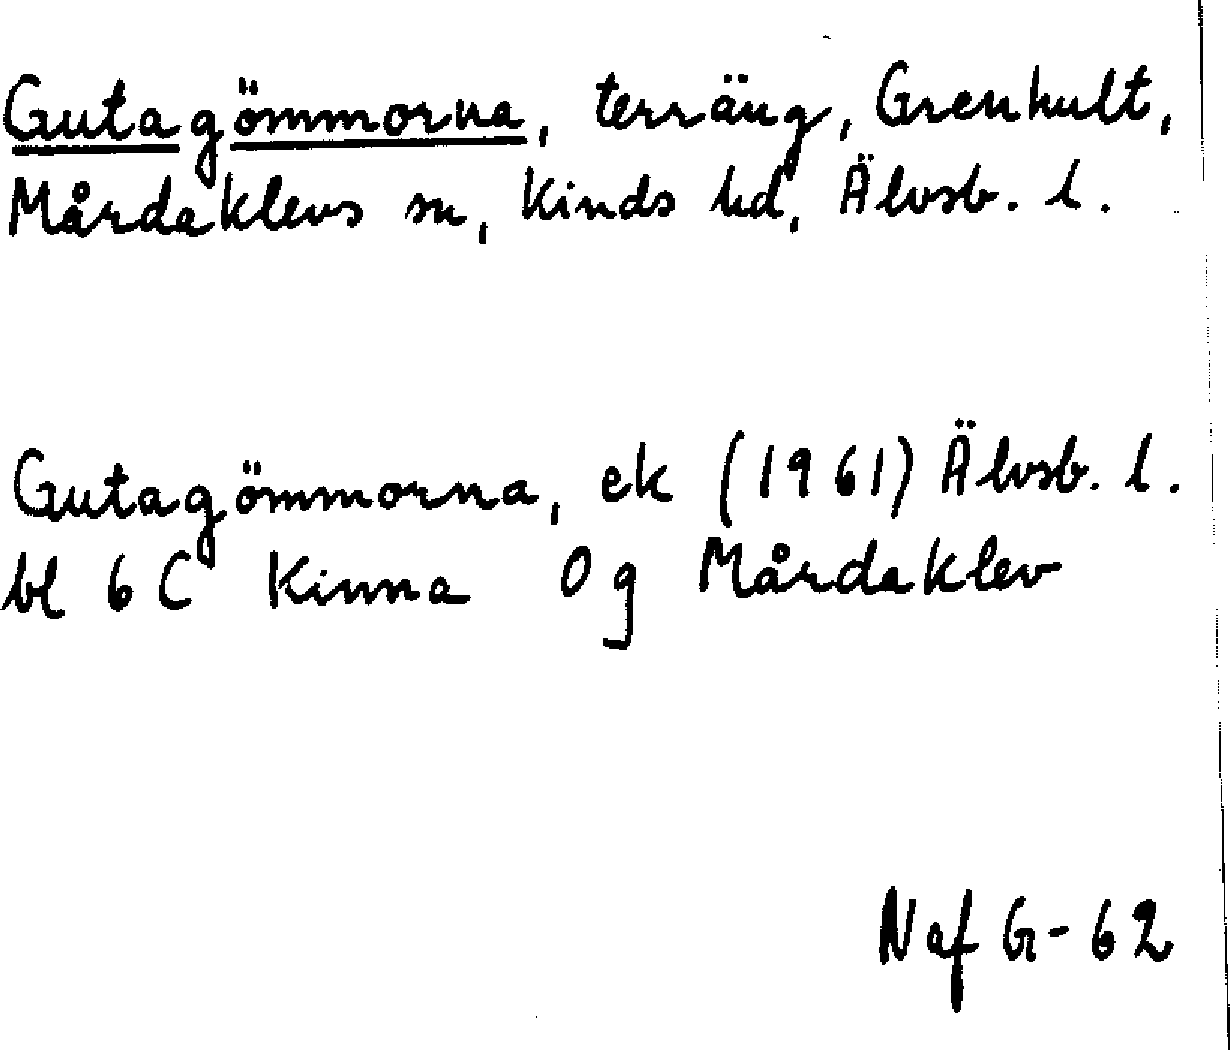 Gutagömmorna, terräng, Grenhult,
Mårdaklevs sn, Kinds hd, Älvsb. l.
Gutagömmorna, ek (1961) Älvsb. l.
bl 6 C Kinna 0 g Mårdaklev
Naf G-62